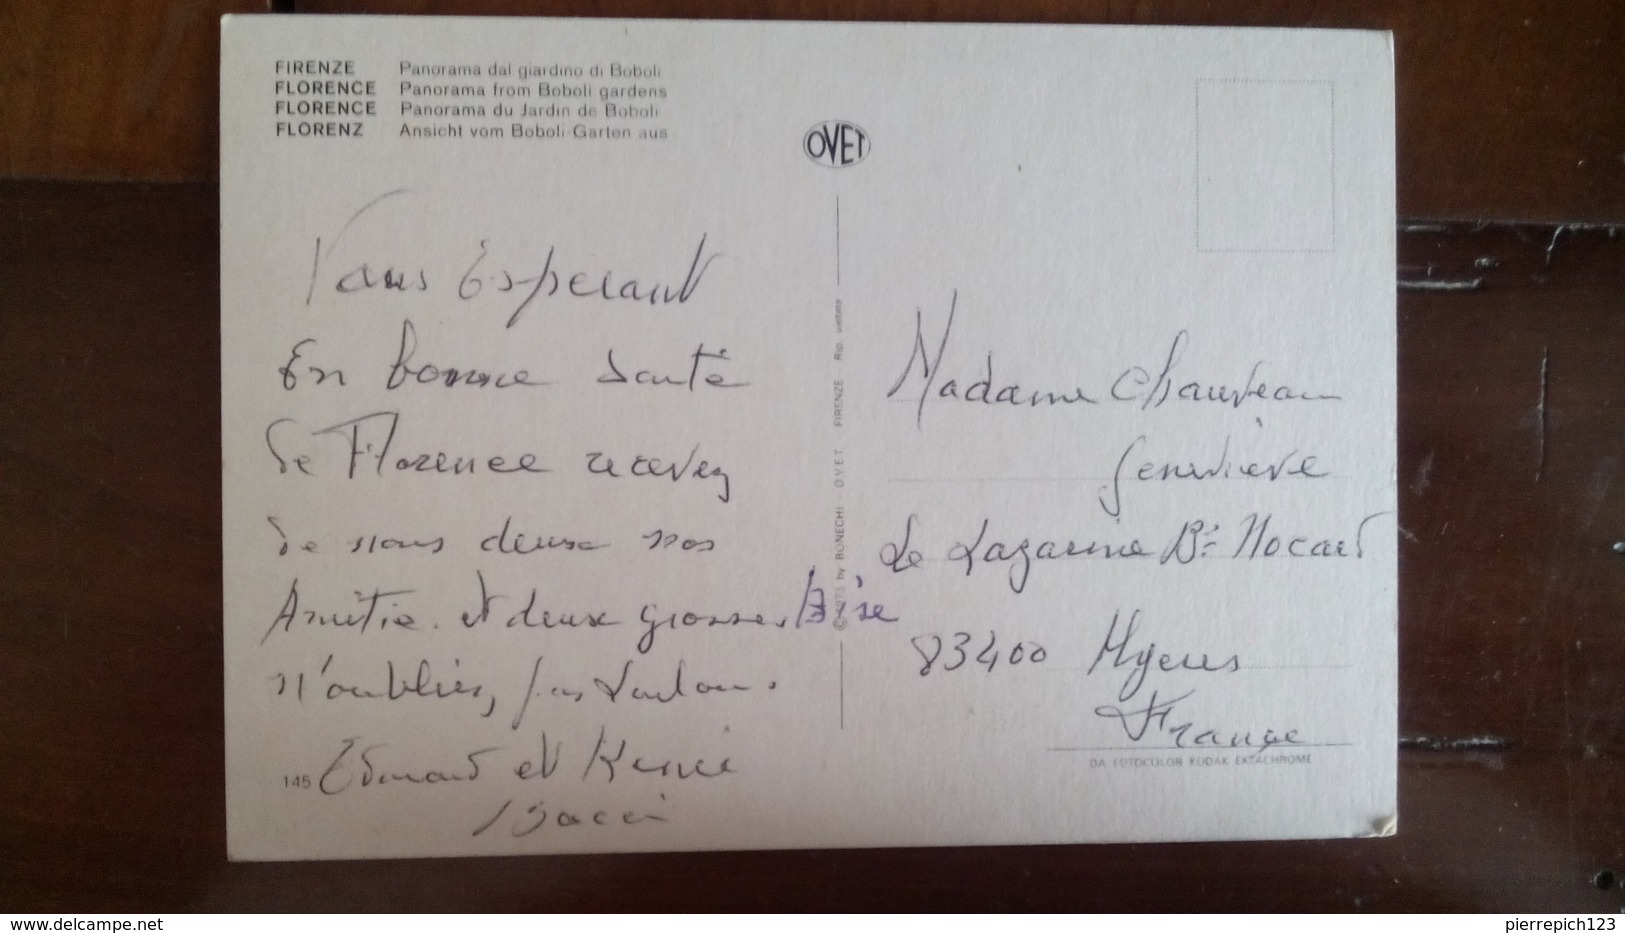 FIRENZE Panorama dal giardino di Boboli
FLORENCE Panorama from Boboli gardens
FLORENCE Panorama du Jardin de Boboli
FLORENZ Ansicht vom Boboli-Garten aus
OVET
Vous Esperant
En bonne Santé
de Florence recevez
de nous deux nos
Amitié. et deux grosses Bise
n'oubliez pas
145 Edouard et Renée
Bacci
© 1973 by BONECHI - OVET FIRENZE Rip. vietata
Madame Chauveau
Geneviève
Le Lazarine Bt Nocard
83400 Hyeres
France
DA FOTOCOLOR KODAK EKTACHROME
delcampe.net
pierrepich123